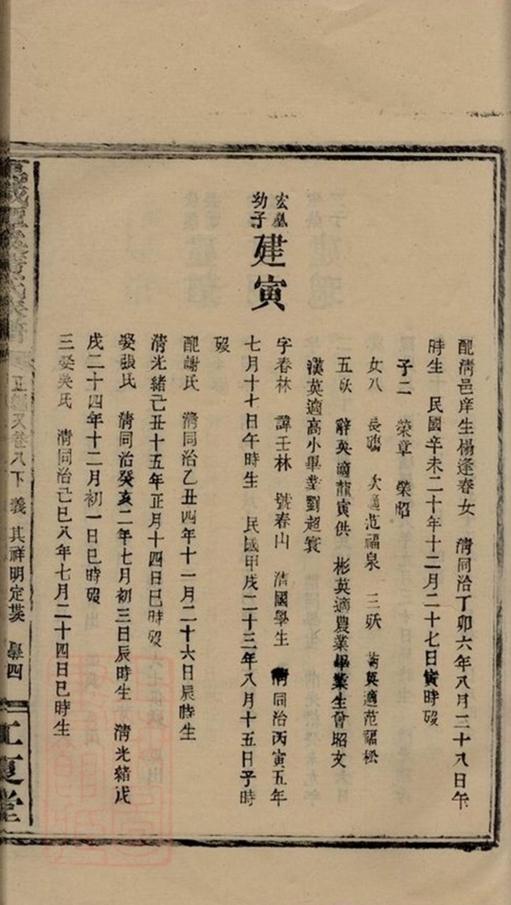 配清邑庠生楊逢春女　清同治丁卯六年八月二十八日午
時生　民國辛未二十年十二月二十七日寅時歿
子二　榮章　榮昭
女八　長殤　次適范福泉　三殀　英適范福松
五殀　辭英適龍寅供　彬英適農業畢業生曾昭文
漢英適高小畢業劉超寰
宏
幼子　建寅
字春林　諱壬林　號春山　清國學生　清同治丙寅五年
七月十七日午時生　民國甲戌二十三年八月十五日子時
歿
配謝氏　清同治乙丑四年十一月二十六日辰時生
清光緒己丑十五年正月十四日巳時歿
娶張氏　清同治癸亥二年七月初三日辰時生　清光緒戊
戌二十四年十二月初一日巳時歿
三娶吳氏　清同治己巳八年七月二十四日巳時生
卷八下　義　其祥明定
江夏堂